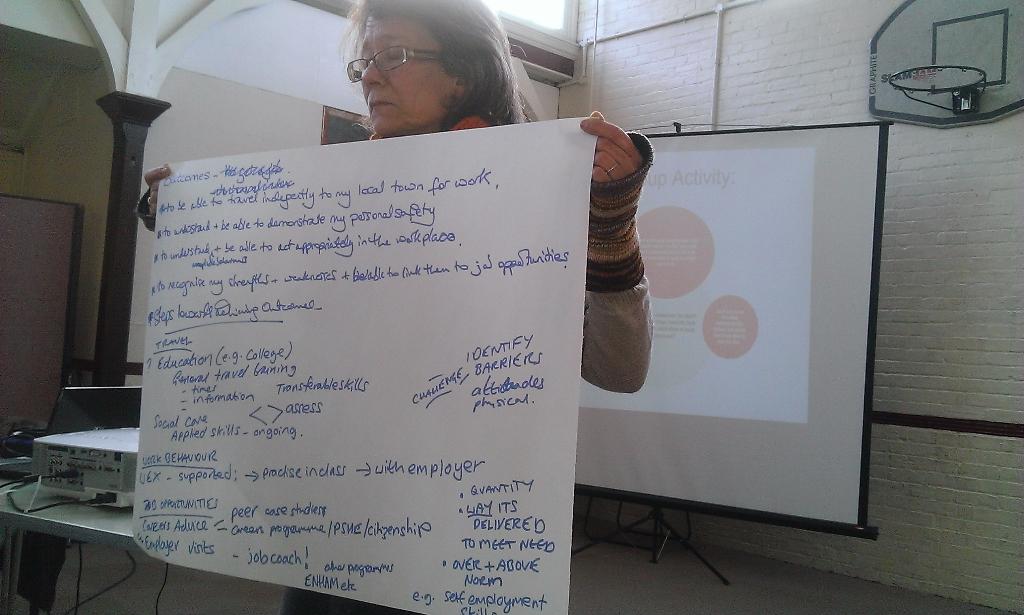 Outcomes -
* to be able to travel indepectly to my local town for work.
* to understand + be able to demonstrate my personal safety
* to understand + be able to act appropriately in the workplace.
* to recognise my strengths + weaknesses + be able to link them to job opportunities.
* Steps towards achieving Outcomes -
TRAVEL
? Education (e.g. College)
General travel training
- times
- information
Transferable skills
<> assess
Social care
Applied skills - ongoing.
CHALLENGE
- IDENTIFY
BARRIERS
attitudes
physical.
WORK BEHAVIOUR
WEX - supported; → practise in class → with employer
JOB OPPORTUNITIES
Careers Advice
- peer case studies
- Careers programme/PSHE/citizenship
Employer visits - job coach!
other programmes
ENHAM etc
• QUANTITY
• WAY ITS
DELIVERED
TO MEET NEED
• OVER + ABOVE
NORM
e.g. self employment
skills
up Activity:
GRAPHITE
SLAM JAM